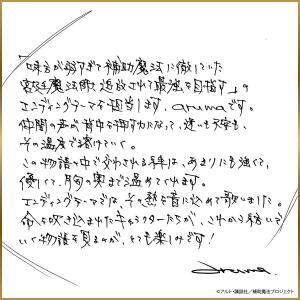 「味方が弱すぎて補助魔法に徹していた
宮廷魔法師、追放されて最強を目指す」の
エンディングテーマを担当します、arumaです。
仲間の声が背中を押す力になって、迷いも不安も、
その温度で溶けていく。
この物語の中で交わされる絆は、あまりにも強くて、
優しくて、胸の奥まで温めてくれます。
エンディングテーマでは、その熱を音に込めて歌いました。
命を吹き込まれたキャラクターたちが、これから紡いで
いく物語を見るのが、とても楽しみです!
aruma.
©アルト・講談社／補助魔法プロジェクト